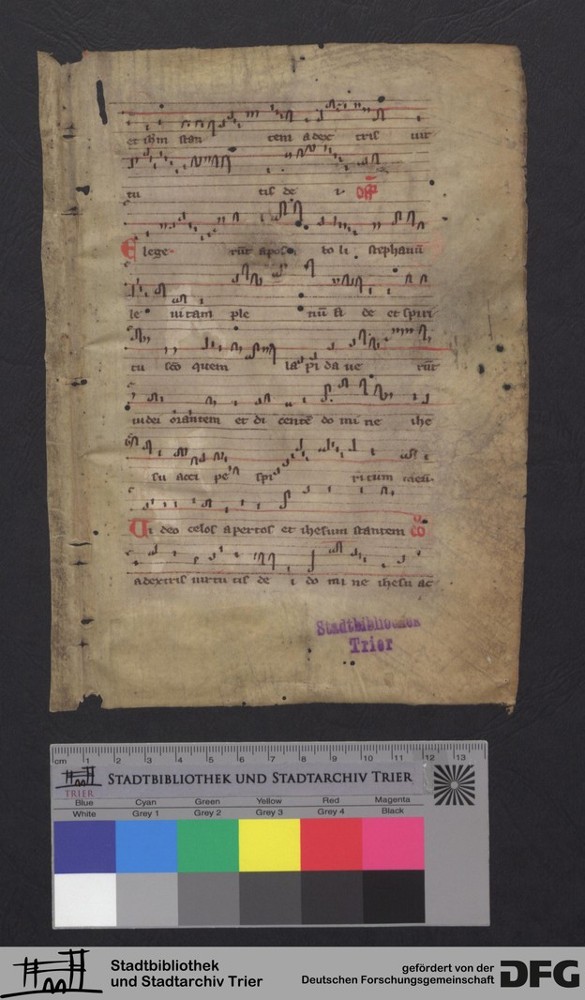 et ihm stan tem adex tris uir
tu tis de i off
Elege rūt apos to li stephanū
le uitam ple nū fi de et spiri
tu sc̄o quem la pi da ue rūt
iudei orantem et di centē do mi ne ihe
su acci pe spi ritum meū
Ui deo celos apertos et ihesum stantem co
adextris uirtu tis de i do mi ne ihesu ac
Stadtbibliothek
Trier
cm 1 2 3 4 5 6 7 8 9 10 11 12 13
TRIER
STADTBIBLIOTHEK UND STADTARCHIV TRIER
Blue Cyan Green Yellow Red Magenta
White Grey 1 Grey 2 Grey 3 Grey 4 Black
Stadtbibliothek
und Stadtarchiv Trier
gefördert von der
Deutschen Forschungsgemeinschaft
DFG